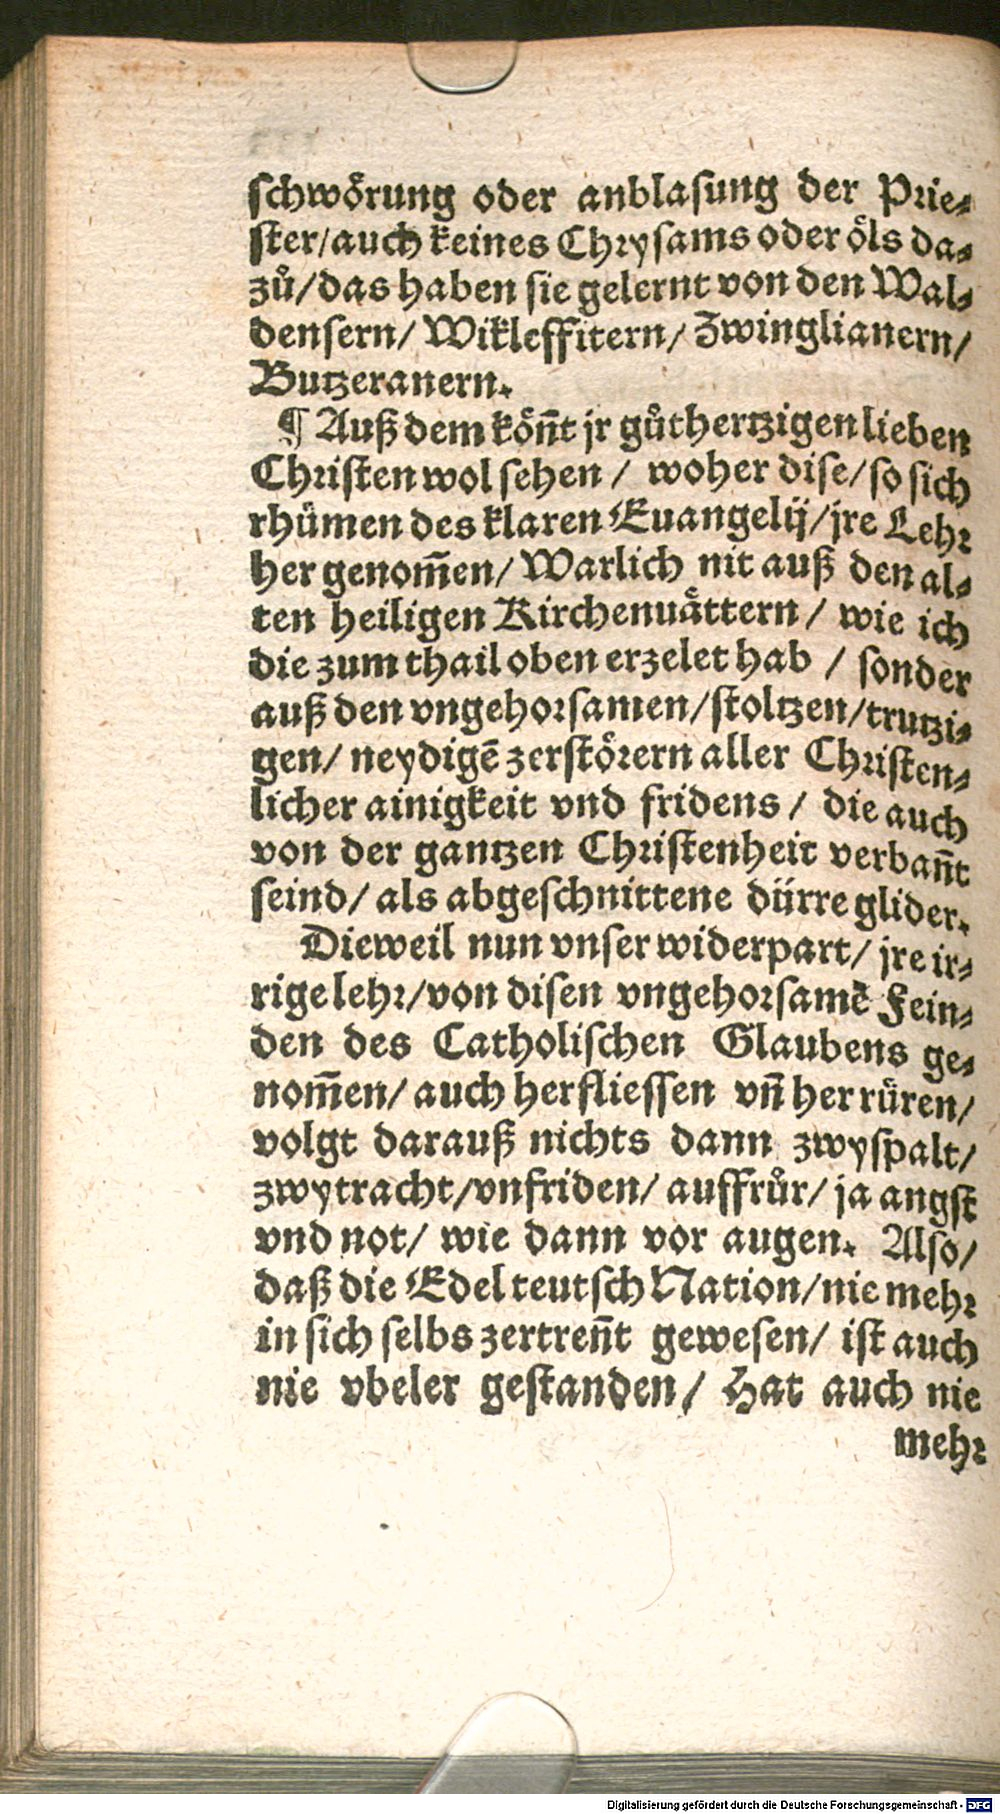 schwoͤrung oder anblasung der Prie⸗
ster/auch keines Chrysams oder oͤls da⸗
zuͦ/das haben sie gelernt von den Wal⸗
densern/ Wikleffitern/ Zwinglianern/
Butzeranern.
¶ Auß dem koͤñt jr guͦthertzigen lieben
Christen wol sehen / woher dise/so sich
rhuͤmen des klaren Euangelij/jre Lehr
her genom̃en/ Warlich nit auß den al⸗
ten heiligen Kirchenuaͤttern / wie ich
die zum thail oben erzelet hab / sonder
auß den vngehorsamen/stoltzen/trutzi⸗
gen/ neydigẽ zerstoͤrern aller Christen⸗
licher ainigkeit vnd fridens / die auch
von der gantzen Christenheit verbañt
seind/ als abgeschnittene dürre glider.
Dieweil nun vnser widerpart/ jre ir⸗
rige lehr/von disen vngehorsamẽ Fein⸗
den des Catholischen Glaubens ge⸗
nom̃en/ auch herfliessen vñ her ruͤren/
volgt darauß nichts dann zwyspalt/
zwytracht/vnfriden/ auffruͦr/ ja angst
vnd not/ wie dann vor augen. Also/
daß die Edel teutsch Nation/nie mehr
in sich selbs zertreñt gewesen/ ist auch
nie vbeler gestanden/ Hat auch nie
mehr
Digitalisierung gefördert durch die Deutsche Forschungsgemeinschaft - DFG